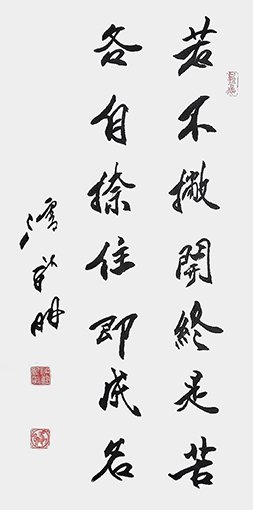 若不撇開終是苦
各自捺住即成名